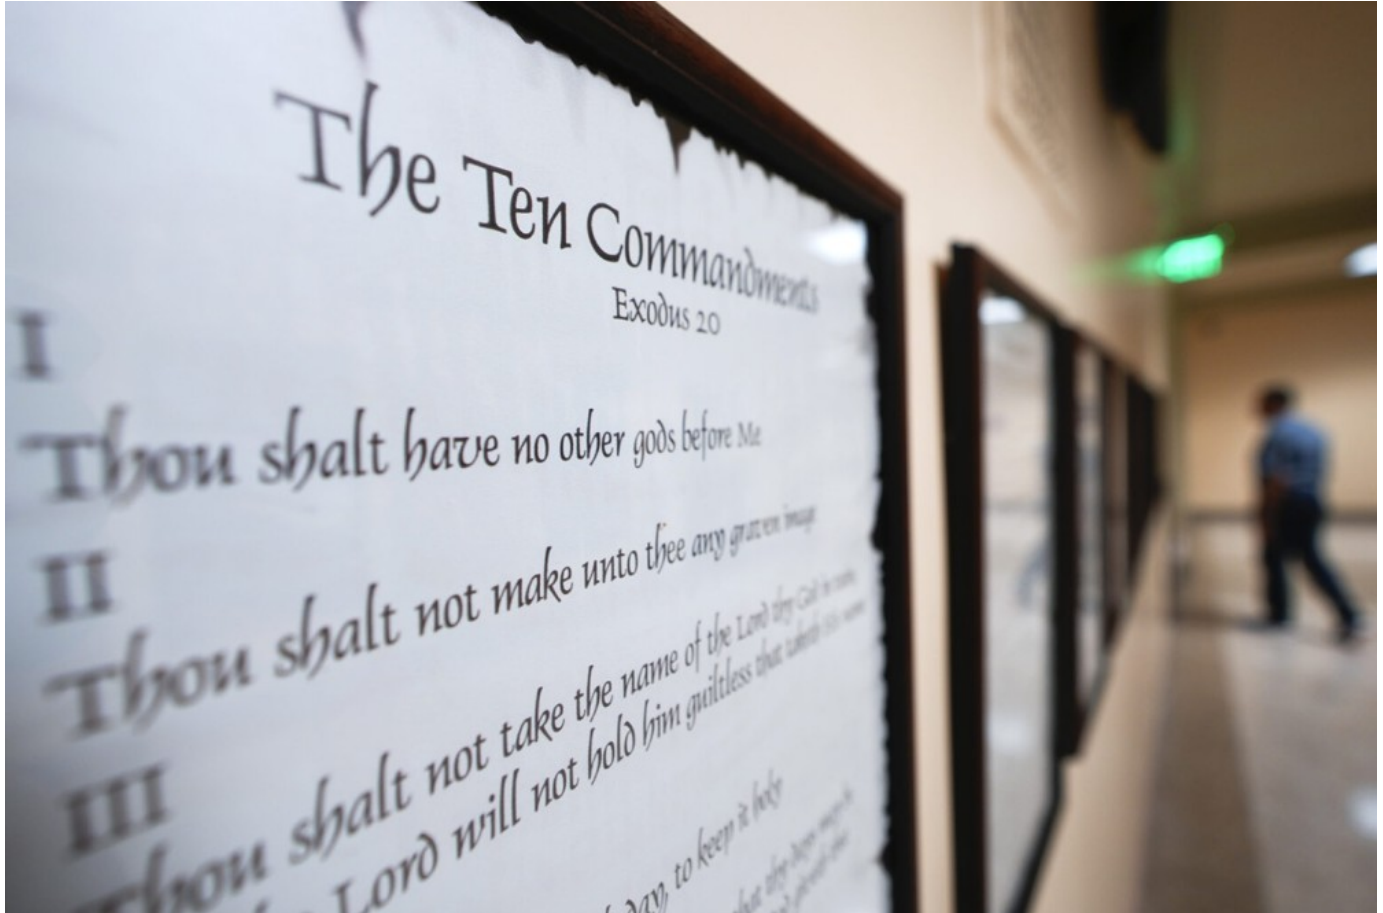 The Ten Commandments
Exodus 20
I
Thou shalt have no other gods before Me
II
Thou shalt not make unto thee any graven image
III
Thou shalt not take the name of the Lord thy God in vain
Lord will not hold him guiltless that taketh His name
day, to keep it holy
that thy days may